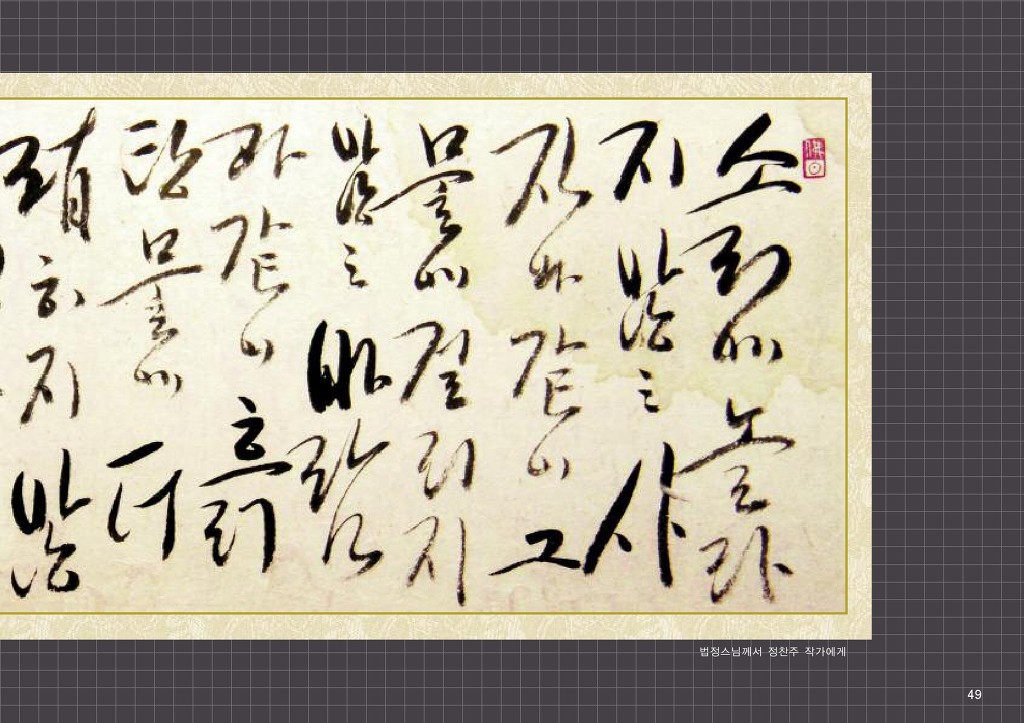 소리에 놀라
지 않는 사
자와 같이 그
물에 걸리지
않는 바람
과 같이 흙
탕물에 더
럽히지 않
법정스님께서 정찬주 작가에게
49